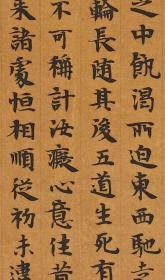 之中飢渴所迫東西馳走
輪長隨其後五道生死有
不可稱計汝癡心意任前
來諸處恒相順從初未違